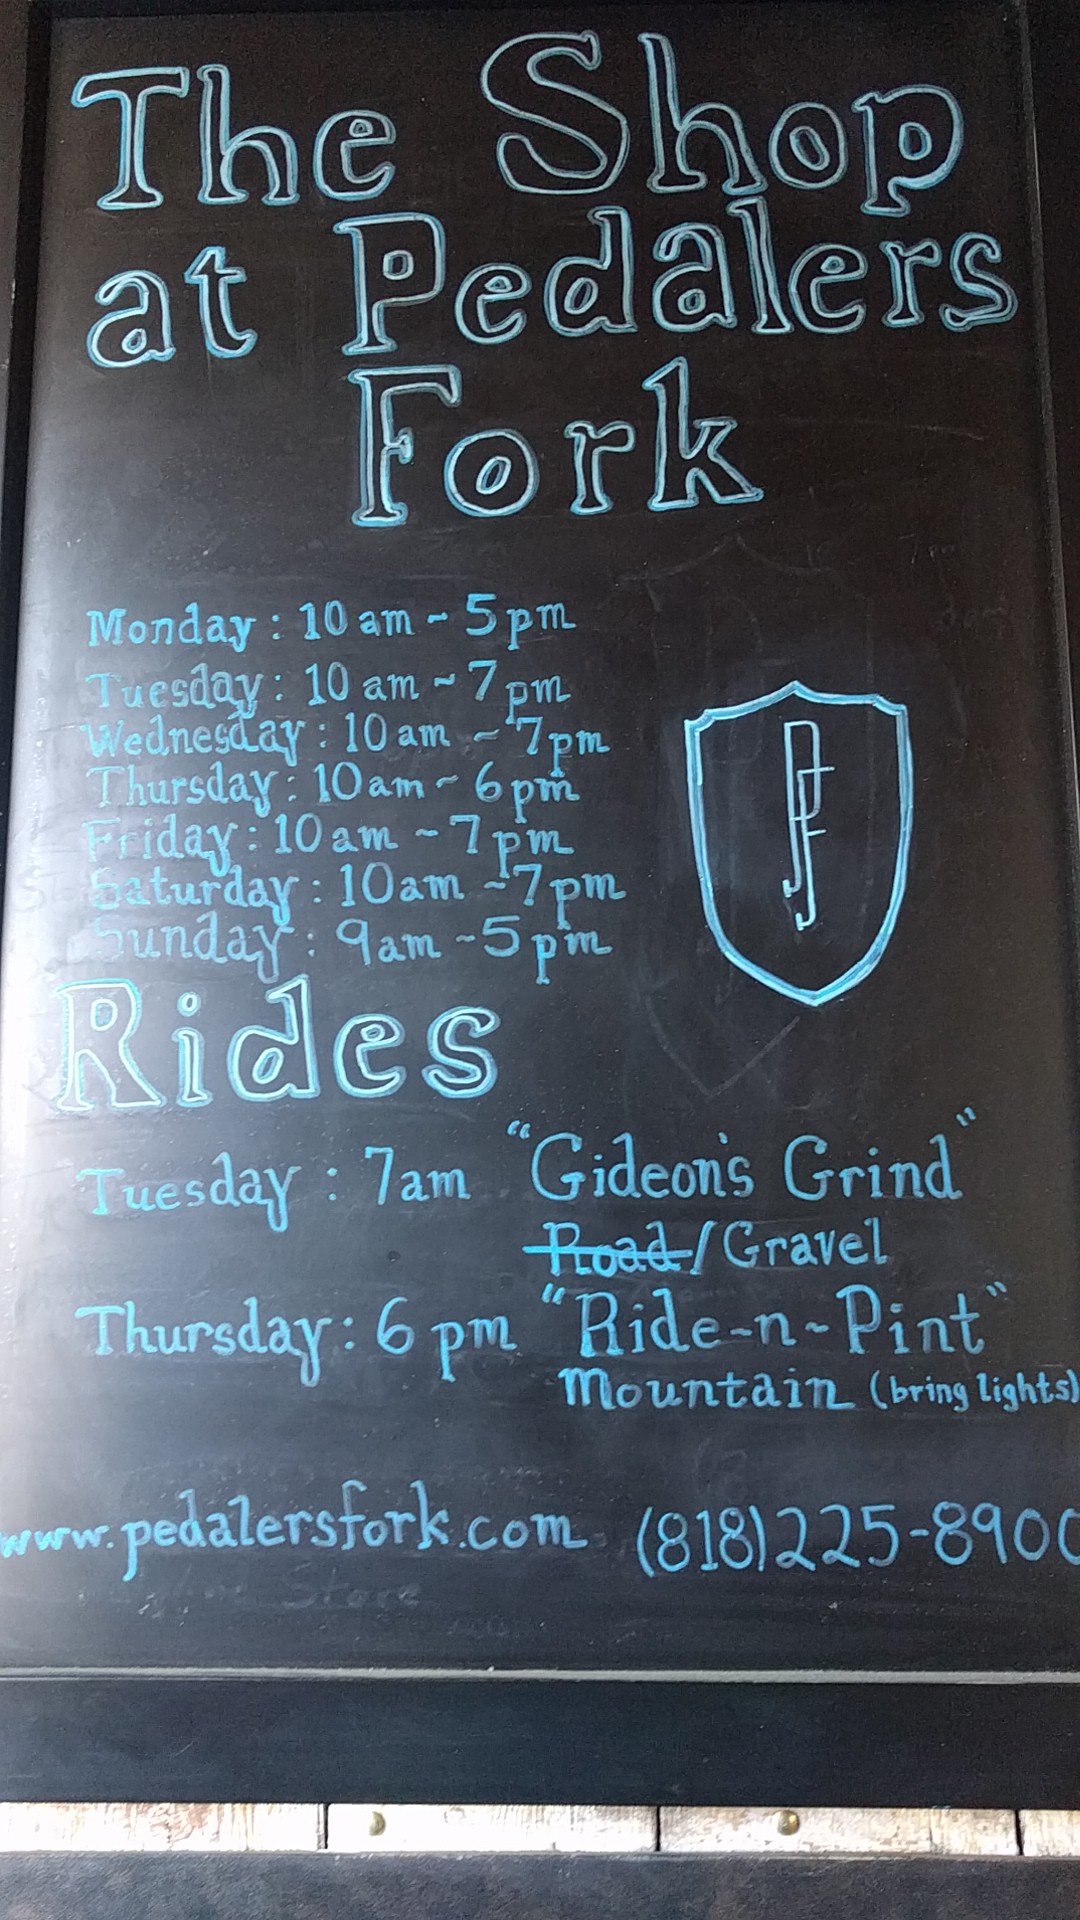 The Shop
at Pedalers
Fork
Monday: 10 am ~ 5 pm
Tuesday: 10 am ~ 7 pm
Wednesday: 10 am ~ 7pm
Thursday: 10am ~ 6 pm
Friday: 10 am ~ 7 pm
Saturday: 10am ~ 7pm
Sunday: 9am ~ 5 pm
PF
Rides
Tuesday: 7am "Gideon's Grind"
Road/Gravel
Thursday: 6 pm "Ride-n-Pint"
Mountain (bring lights)
www.pedalersfork.com (818)225-8900
Store